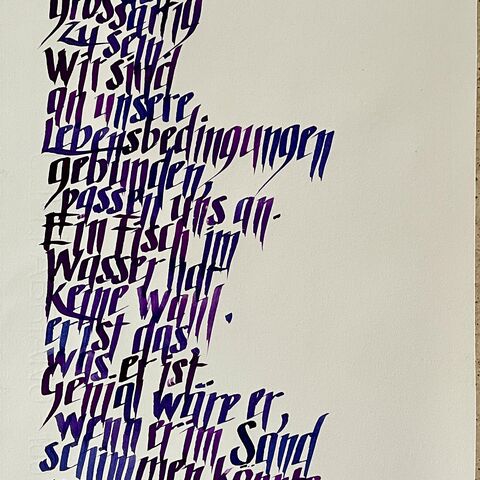 grossartig
zu sein
Wir sind
an unsere
Lebensbedingungen
gebunden,
passen uns an.
Ein Fisch im
Wasser hat
keine Wahl.
er ist das
was er ist
Genial wäre er,
wenn er im Sand
schwimmen könnte